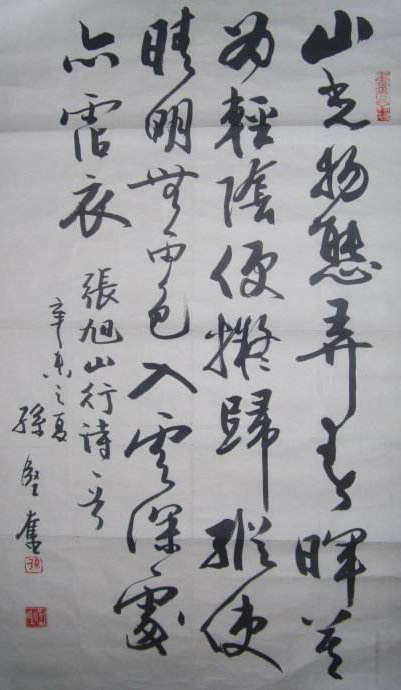 山光物態弄春暉莫
為輕陰便擬歸縱使
晴明無雨色入雲深處
亦霑衣
張旭山行詩一首
辛未之夏
孫堅奮